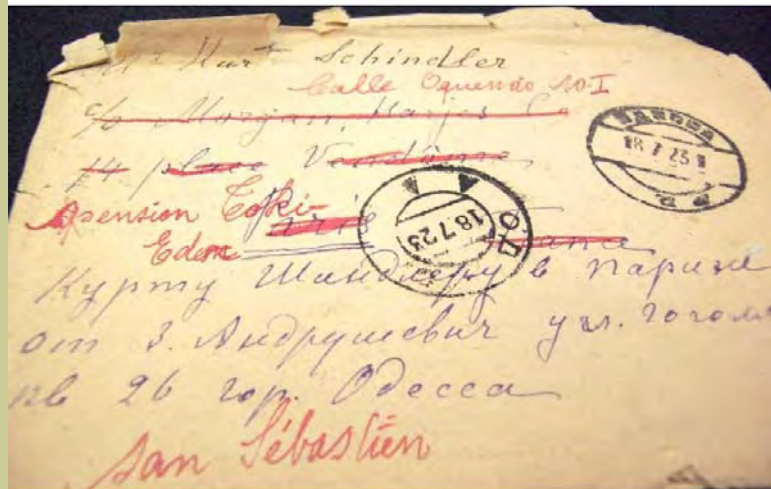 Mr Kurt Schindler
Calle Oquendo 10-I
c/o Morgan, Harjes Co
14 place Vendôme
pension Toki-
Eden Paris France
18.7.23
18.7.23
Курту Шиндлеру в Париже
от З. Андрушевич угл. Гоголя
кв 26 гор. Одесса
San Sébastien